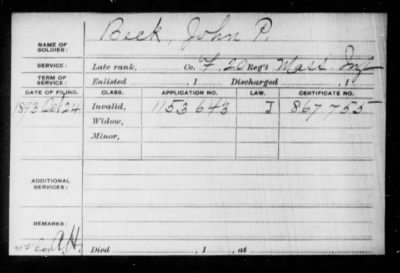 Beck, John P.
NAME OF SOLDIER:
SERVICE: Late rank, Co. F, 20 Reg't Mass. Inf
TERM OF SERVICE: Enlisted , 1 Discharged , 1
DATE OF FILING. CLASS. APPLICATION NO. LAW. CERTIFICATE NO.
1893 Oct 24 Invalid, 1153643 J 867755
Widow,
Minor,
ADDITIONAL SERVICES:
REMARKS:
Died , 1 , at